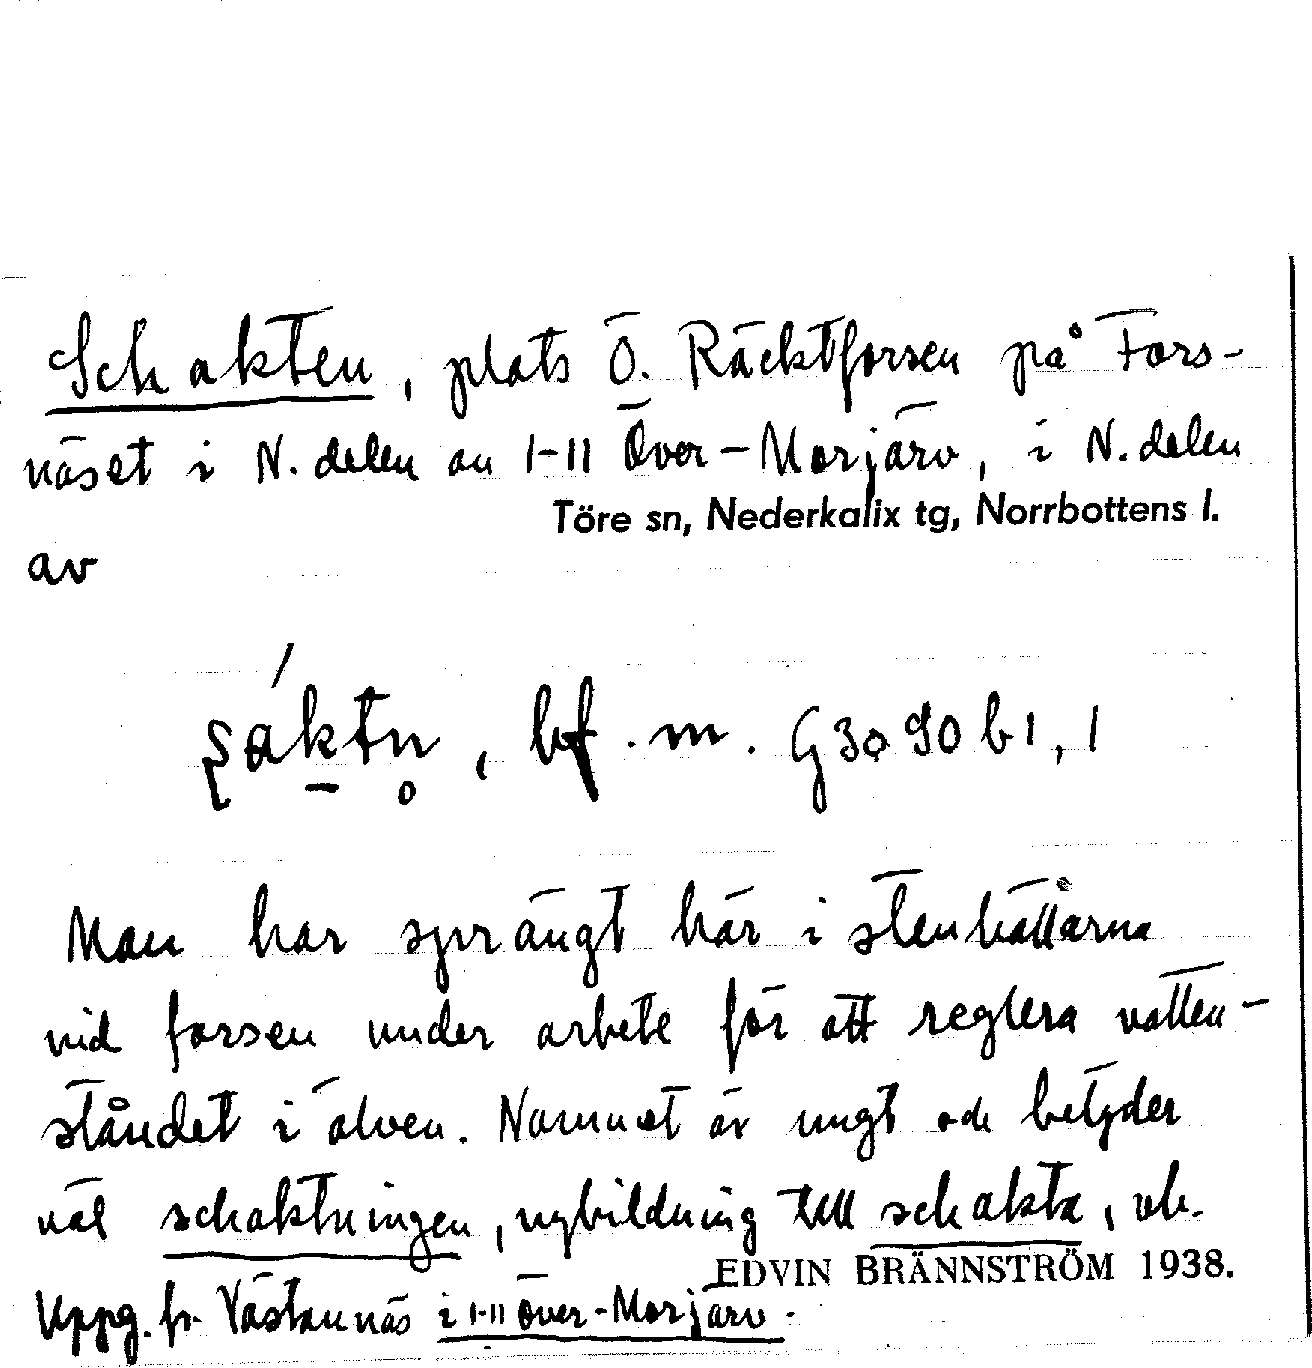 Schakten, plats Ö. Räcktforsen på Fors-
näset i N. delen av 1-11 Över-Morjärv, i N. delen
Töre sn, Nederkalix tg, Norrbottens l.
av
bf. m. G3090b1, 1
Man har sprängt här i stenhällarna
vid forsen under arbete för att reglera vatten-
ståndet i älven. Namnet är ungt och betyder
väl schaktningen, nybildning till schakta, vb.
EDVIN BRÄNNSTRÖM 1938.
Uppg. fr. Västannäs i 1-11 Över-Morjärv.